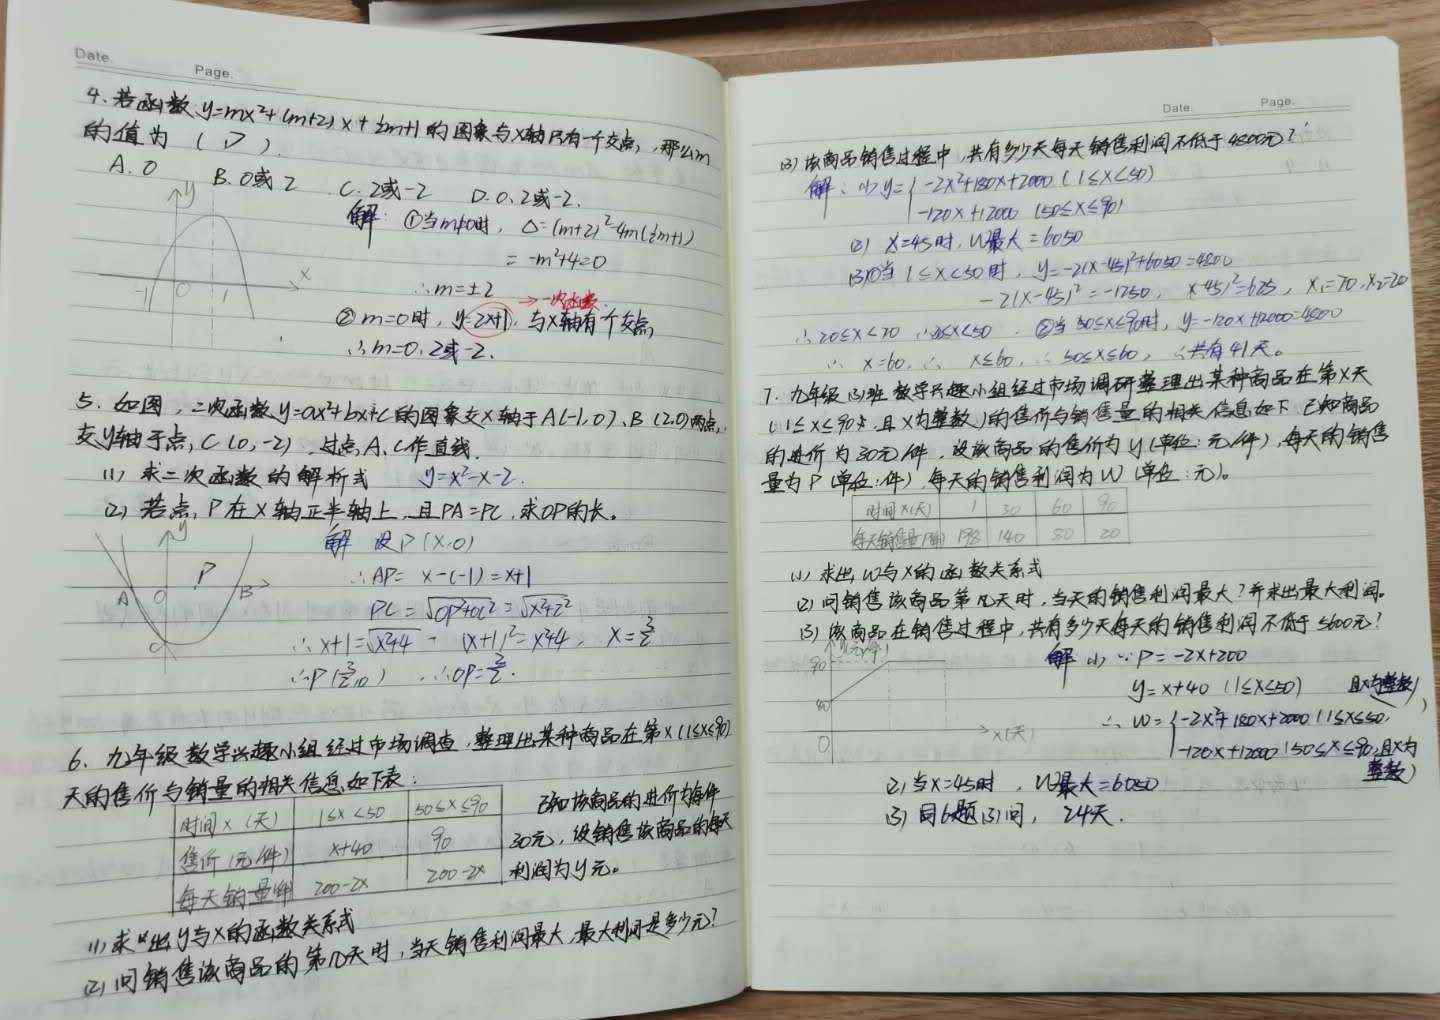 Date.
Page.
4、若函数 y=mx²+(m+2)x+½m+1的图象与x轴只有一个交点,那么m
的值为 ( D ).
A. 0 B. 0或2 C. 2或-2 D. 0, 2或-2.
y
x
-1 0 1
解: ①当m≠0时, Δ=(m+2)²-4m(½m+1)
= -m²+4=0
∴m=±2
→一次函数.
②m=0时, y=2x+1, 与x轴有一个交点,
∴m=0, 2或-2.
5、如图,二次函数y=ax²+bx+c的图象交x轴于A(-1,0)、B(2,0)两点,
交y轴于点,C(0,-2),过点A、C作直线.
(1) 求二次函数的解析式 y=x²-x-2.
(2) 若点,P在x轴正半轴上,且PA=PC,求OP的长.
y
A O P B
C
解 设P(x,0)
∴AP= x-(-1)=x+1
PC=√OP²+OC²=√x²+2²
∴x+1=√x²+4 (x+1)²=x²+4, x=3/2
∴P(3/2,0) ∴OP=3/2.
6、九年级数学兴趣小组经过市场调查,整理出某种商品在第x(1≤x≤90)
天的售价与销量的相关信息如下表:
时间x(天) 1≤x<50 50≤x≤90
售价(元/件) x+40 90
每天销量(件) 200-2x 200-2x
已知该商品的进价为每件
30元,设销售该商品的每天
利润为y元。
(1)求出y与x的函数关系式
(2)问销售该商品的第几天时,当天销售利润最大,最大利润是多少元?
Date.
Page.
(3)该商品销售过程中,共有多少天每天销售利润不低于4800元?
解: (1) y={-2x²+180x+2000 (1≤x<50)
-120x+12000 (50≤x≤90)
(2) x=45时, W最大=6050
(3)①当1≤x<50时, y=-2(x-45)²+6050=4800
-2(x-45)²=-1250, (x-45)²=625, x₁=70, x₂=20
∴20≤x<70 ∴20≤x<50 ②当50≤x≤90时, y=-120x+12000=4800
∴ x=60, ∴ x≤60, ∴50≤x≤60, ∴共有41天。
7、九年级(3)班数学兴趣小组经过市场调研整理出某种商品在第x天
(1≤x≤90,且x为整数)的售价与销售量的相关信息如下 已知商品
的进价为30元/件,设该商品的售价为y(单位:元/件),每天的销售
量为P(单位:件),每天的销售利润为W(单位:元)。
时间x(天) 1 30 60 90
每天销售量P(件) 198 140 80 20
(1) 求出W与x的函数关系式
(2) 问销售该商品第几天时,当天的销售利润最大?并求出最大利润.
(3) 该商品在销售过程中,共有多少天每天的销售利润不低于5600元?
y(元/件)
90
40
0
x(天)
解 (1) ∵P=-2x+200
y=x+40 (1≤x≤50) 且x为整数)
∴ W={-2x²+180x+2000 (1≤x≤50,
-120x+12000 (50≤x≤90,且x为
整数)
(2)当x=45时, W最大=6050
(3)同6题(3)问, 24天.